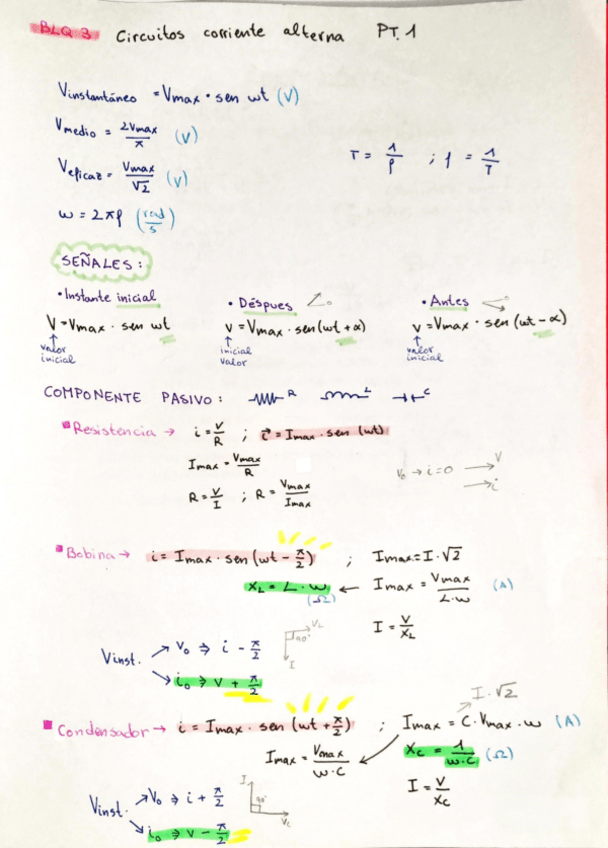 BLQ 3 Circuitos corriente alterna PT. 1
Vinstantáneo = Vmax · sen wt (V)
Vmedio = 2Vmax/π (V)
T = 1/f ; f = 1/T
Veficaz = Vmax/√2 (V)
w = 2πf (rad/s)
SEÑALES:
• Instante inicial
V = Vmax · sen wt
↑
valor
inicial
• Déspues
v = Vmax · sen (wt + α)
↑
inicial
valor
• Antes
v = Vmax · sen (wt - α)
↑
valor
inicial
COMPONENTE PASIVO: R L C
Resistencia → i = V/R ; i = Imax · sen (wt)
Imax = Vmax/R
V₀ → i = 0 V
i
R = V/I ; R = Vmax/Imax
Bobina → i = Imax · sen (wt - π/2) ; Imax = I · √2
XL = L · w ← Imax = Vmax/L·w (A)
(Ω)
I = V/XL
Vinst. → V₀ ⇒ i - π/2
→ i₀ ⇒ v + π/2
90° VL
I
I · √2
Condensador → i = Imax · sen (wt + π/2) ; Imax = C · Vmax · w (A)
Imax = Vmax/w·C
Xc = 1/w·C (Ω)
I = V/Xc
Vinst. → V₀ ⇒ i + π/2
→ i₀ ⇒ v - π/2
I 90° Vc